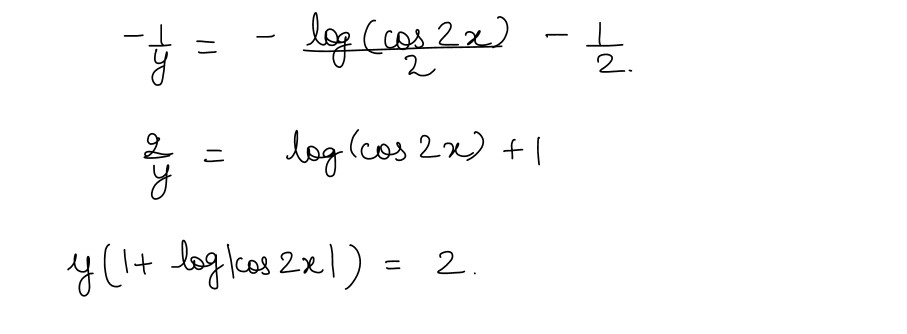 -1/y = - log(cos 2x)/2 - 1/2.
2/y = log(cos 2x) + 1
y(1+ log|cos 2x|) = 2.